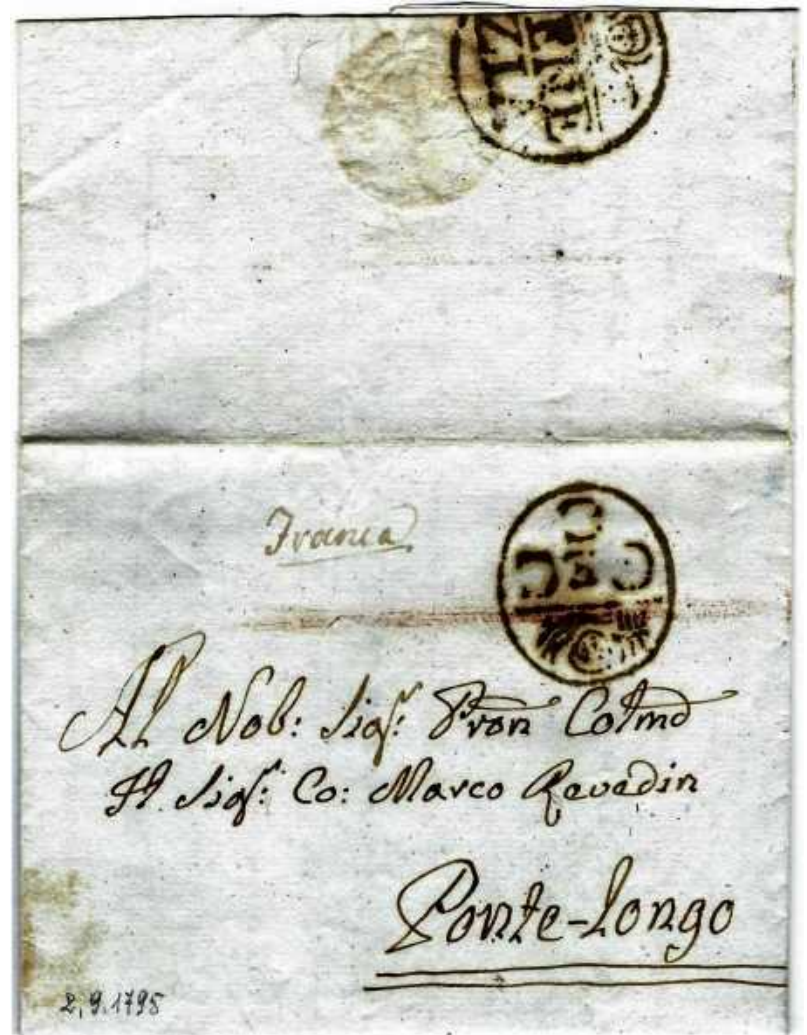 Franca
C C C
Al Nob: Sigr: Pron Colmo
Il Sigr: Co: Marco Revedin
Ponte-longo
2,9.1795